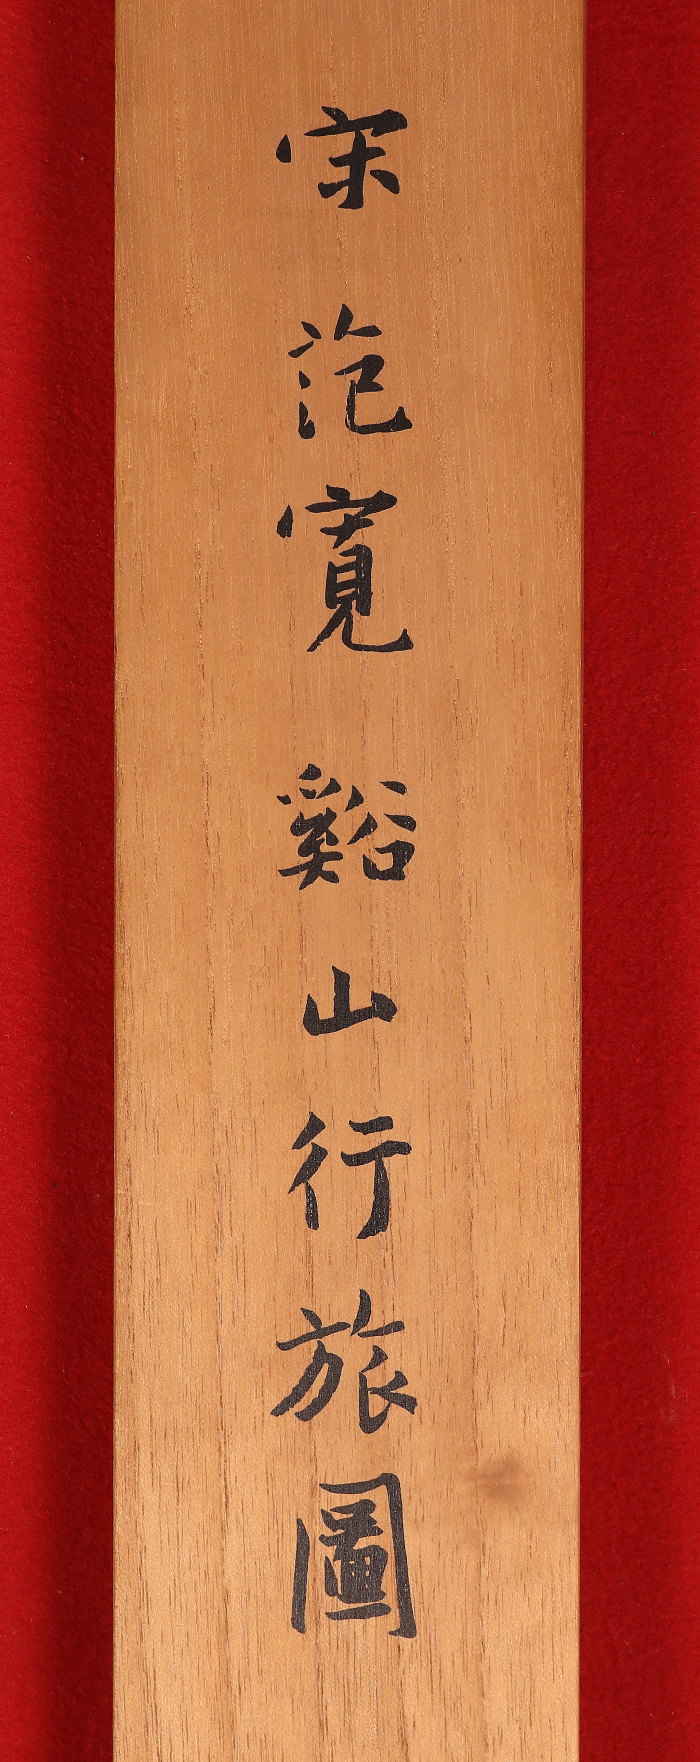 宋范寬谿山行旅圖